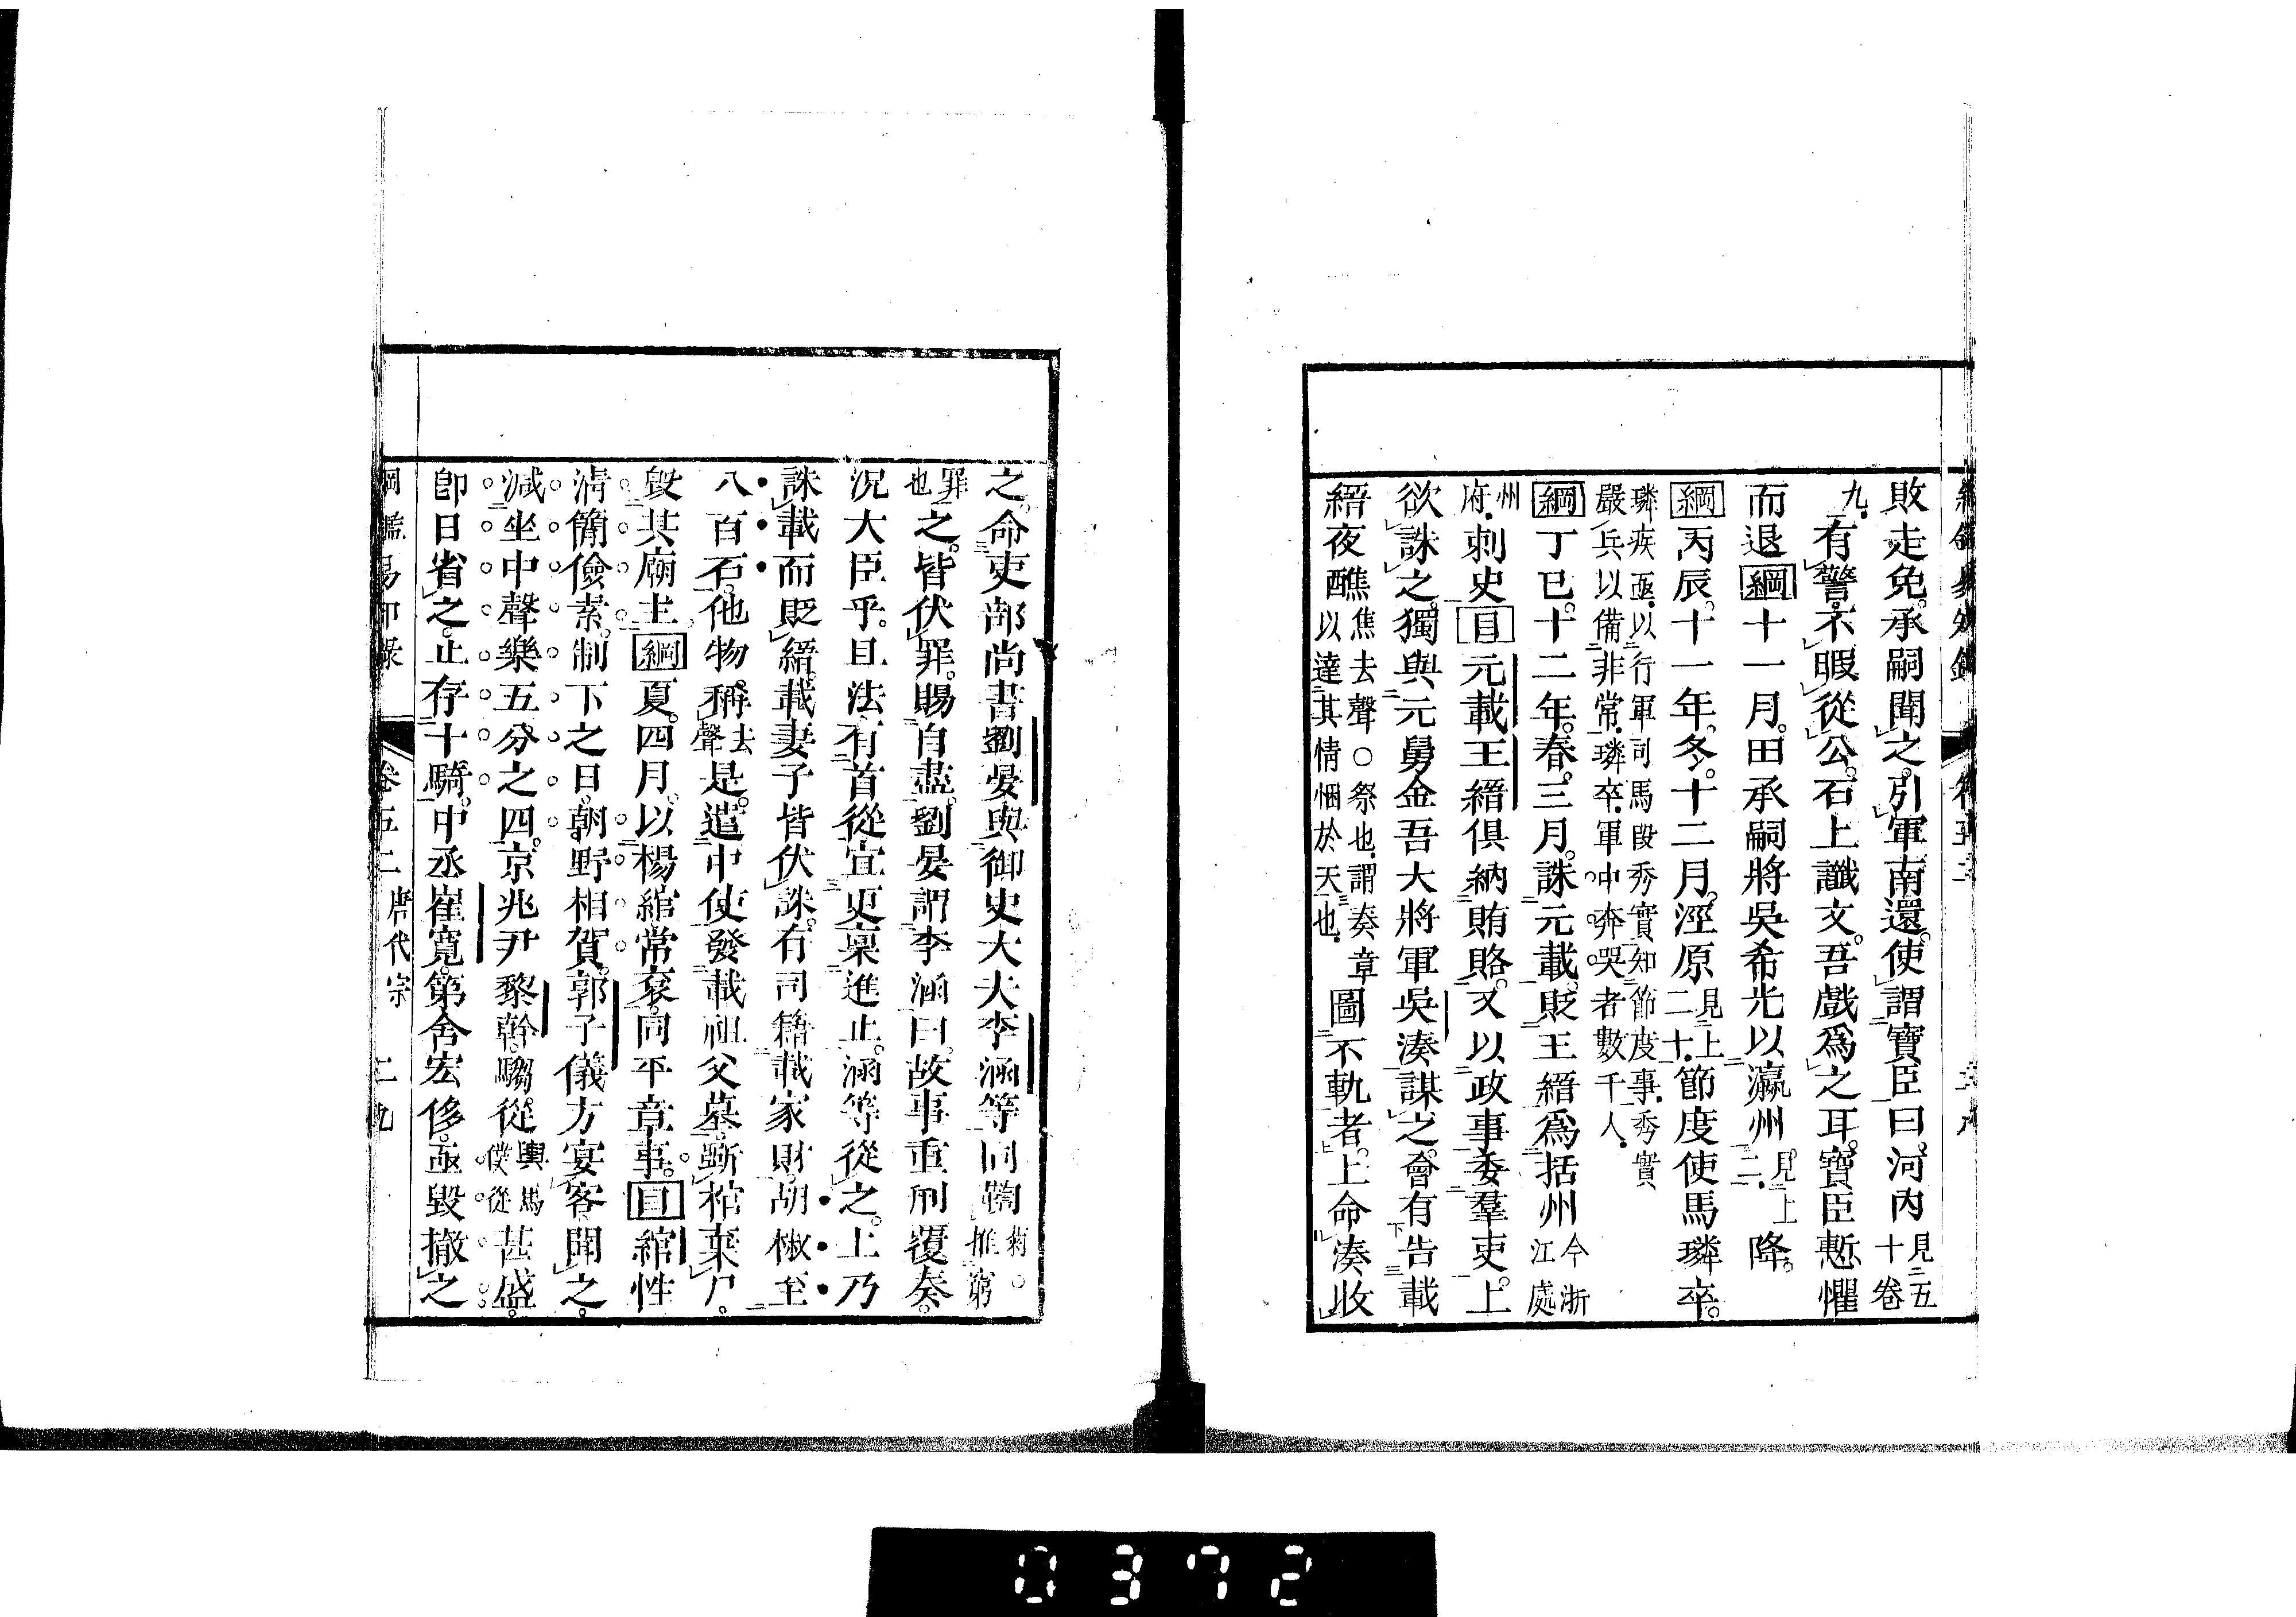 敗走免。承嗣聞之。引軍南還。使謂寶臣曰。河內見五十卷
九。有警。不暇從公。石上讖文。吾戲爲之耳。寶臣慙懼
而退綱十一月。田承嗣將吳希光以瀛州見上二。降。
綱丙辰。十一年。冬。十二月。涇原見上二十。節度使馬璘卒。
璘疾亟。以行軍司馬段秀實知節度事。秀實
嚴兵以備非常。璘卒。軍中奔哭者數千人。
綱丁巳。十二年。春。三月。誅元載。貶王縉爲括州今浙江處
州府。刺史目元載王縉俱納賄賂。又以政事委羣吏。上
欲誅之。獨與元舅金吾大將軍吳湊謀之。會有告載
縉夜醮焦去聲○祭也。謂奏章以達其情悃於天也。圖不軌者。上命湊收
之。命吏部尚書劉晏與御史大夫李涵等同鞫菊。推窮
罪也之。皆伏罪。賜自盡。劉晏謂李涵曰。故事重刑覆奏。
況大臣乎。且法有首從。宜更稟進止。涵等從之。上乃
誅載而貶縉。載妻子皆伏誅。有司籍載家財。胡椒至
八百石。他物稱去聲是。遣中使發載祖父墓。斲棺棄尸。
毀其廟主。綱夏。四月。以楊綰常袞。同平章事。目綰性
清簡儉素。制下之日。朝野相賀。郭子儀方宴客。聞之。
減坐中聲樂五分之四。京兆尹黎幹。騶從輿馬僕從甚盛。
卽日省之。止存十騎。中丞崔寬。第舍宏侈。亟毀撤之
綱鑑易知錄 卷五二 唐代宗 二九
0372